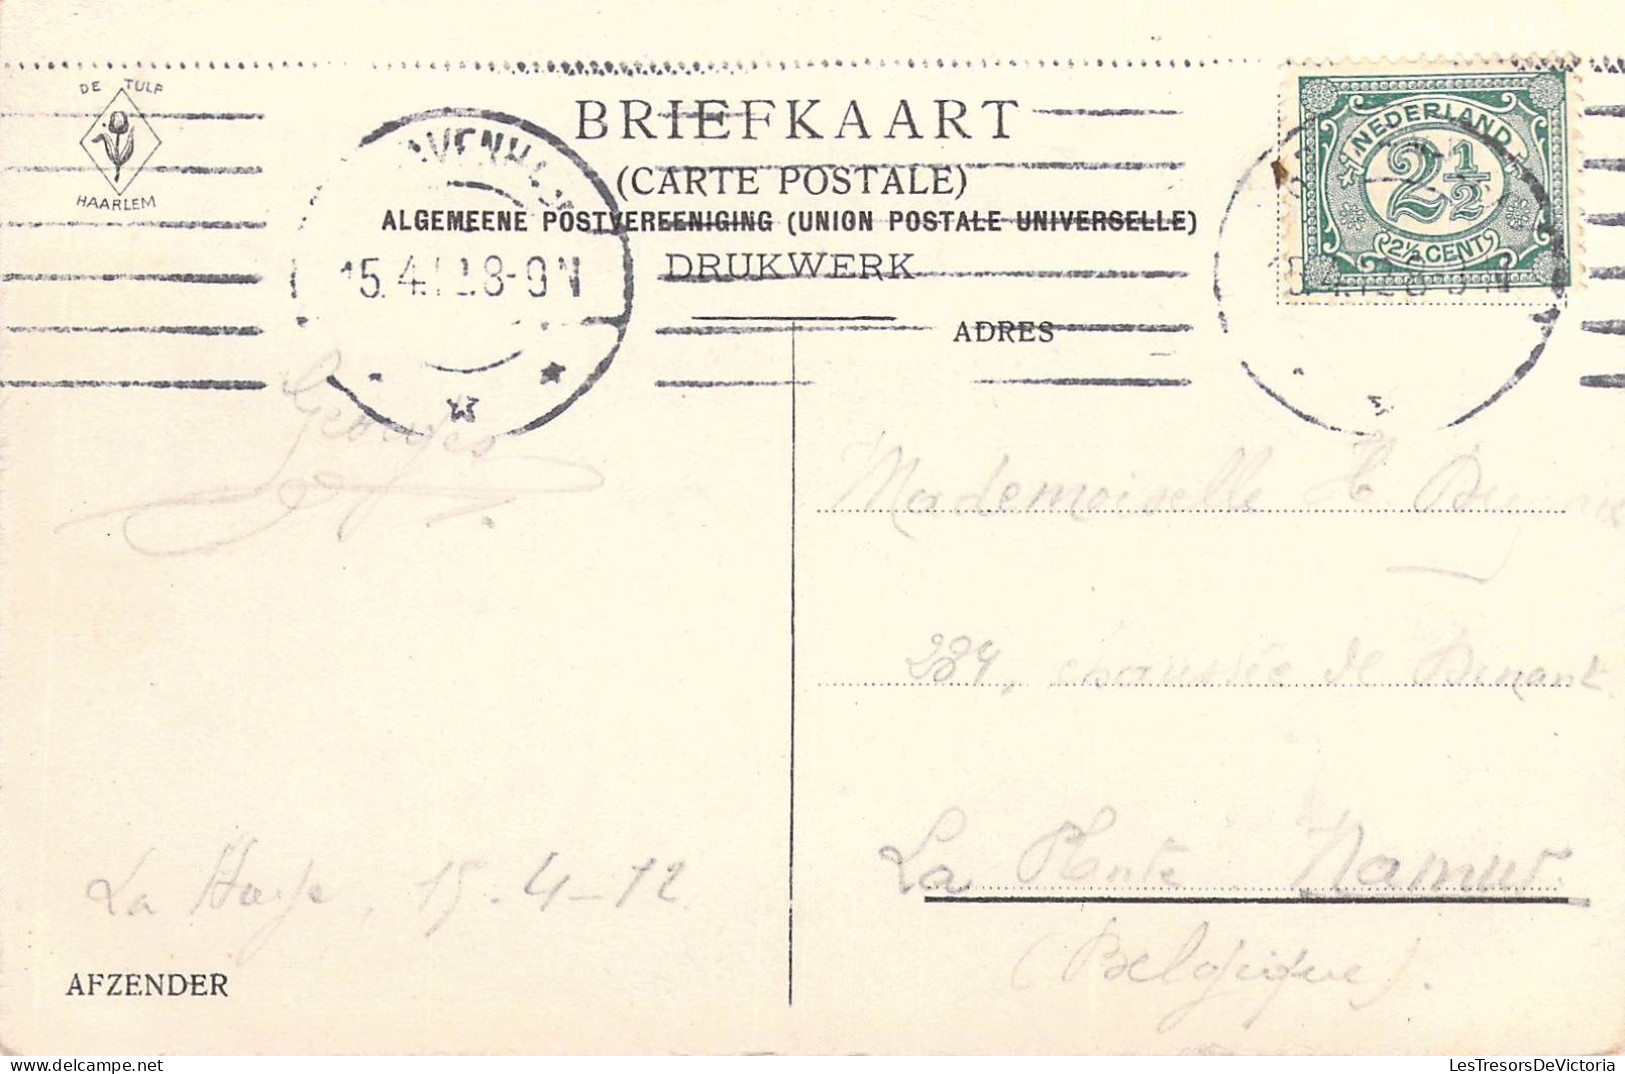 DE TULP
HAARLEM
BRIEFKAART
(CARTE POSTALE)
ALGEMEENE POSTVEREENIGING (UNION POSTALE UNIVERSELLE)
DRUKWERK
ADRES
NEDERLAND
2½
2½ CENT
15.4.12 8-9N
Georges
Mademoiselle H.
284, chaussée de Dinant
La Plante Namur.
(Belgique).
La Haye, 15.4-12
AFZENDER
LesTresorsDeVictoria